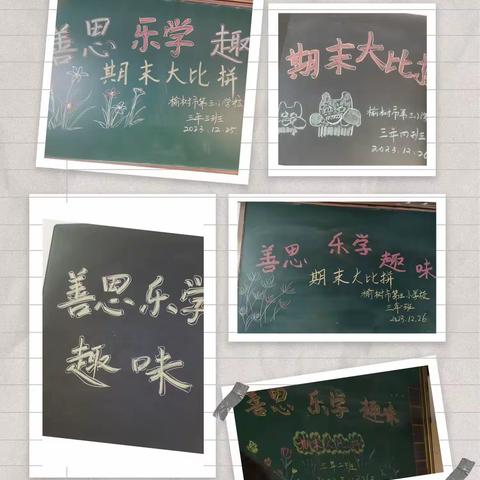 善思 乐学 趣
期末大比拼
榆树市第三小学校
三年三班
2023.12.25
期末大比拼
榆树市第三小学
三年四班
2023.12.26
善思乐学
趣味
善思 乐学 趣味
期末大比拼
榆树市第三小学校
三年班
2023.12.26
善思 乐学 趣味
期末大比拼
三年二班